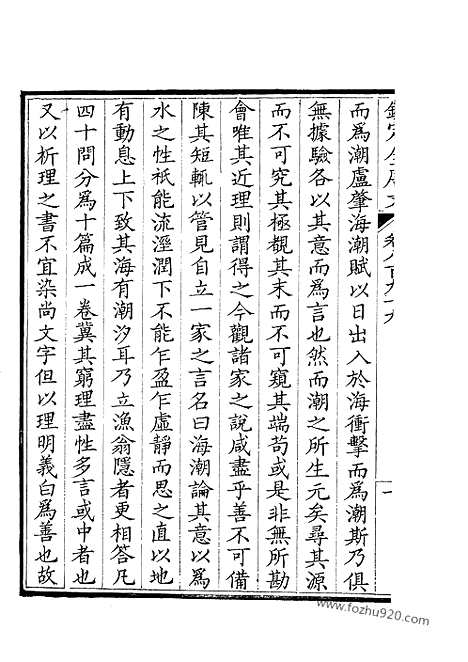 而爲潮盧肇海潮賦以日出入於海衝擊而爲潮斯乃俱
無據驗各以其意而爲言也然而潮之所生元矣尋其源
而不可究其極覩其末而不可窺其端苟或是非無所勘
會唯其近理則謂得之今觀諸家之說咸盡乎善不可備
陳其短輒以管見自立一家之言名曰海潮論其意以爲
水之性祇能流溼潤下不能乍盈乍虛靜而思之直以地
有動息上下致其海有潮汐耳乃立漁翁隱者更相答凡
四十問分爲十篇成一卷冀其窮理盡性多言或中者也
又以析理之書不宜染尚文字但以理明義白爲善也故
www.fozhu920.com